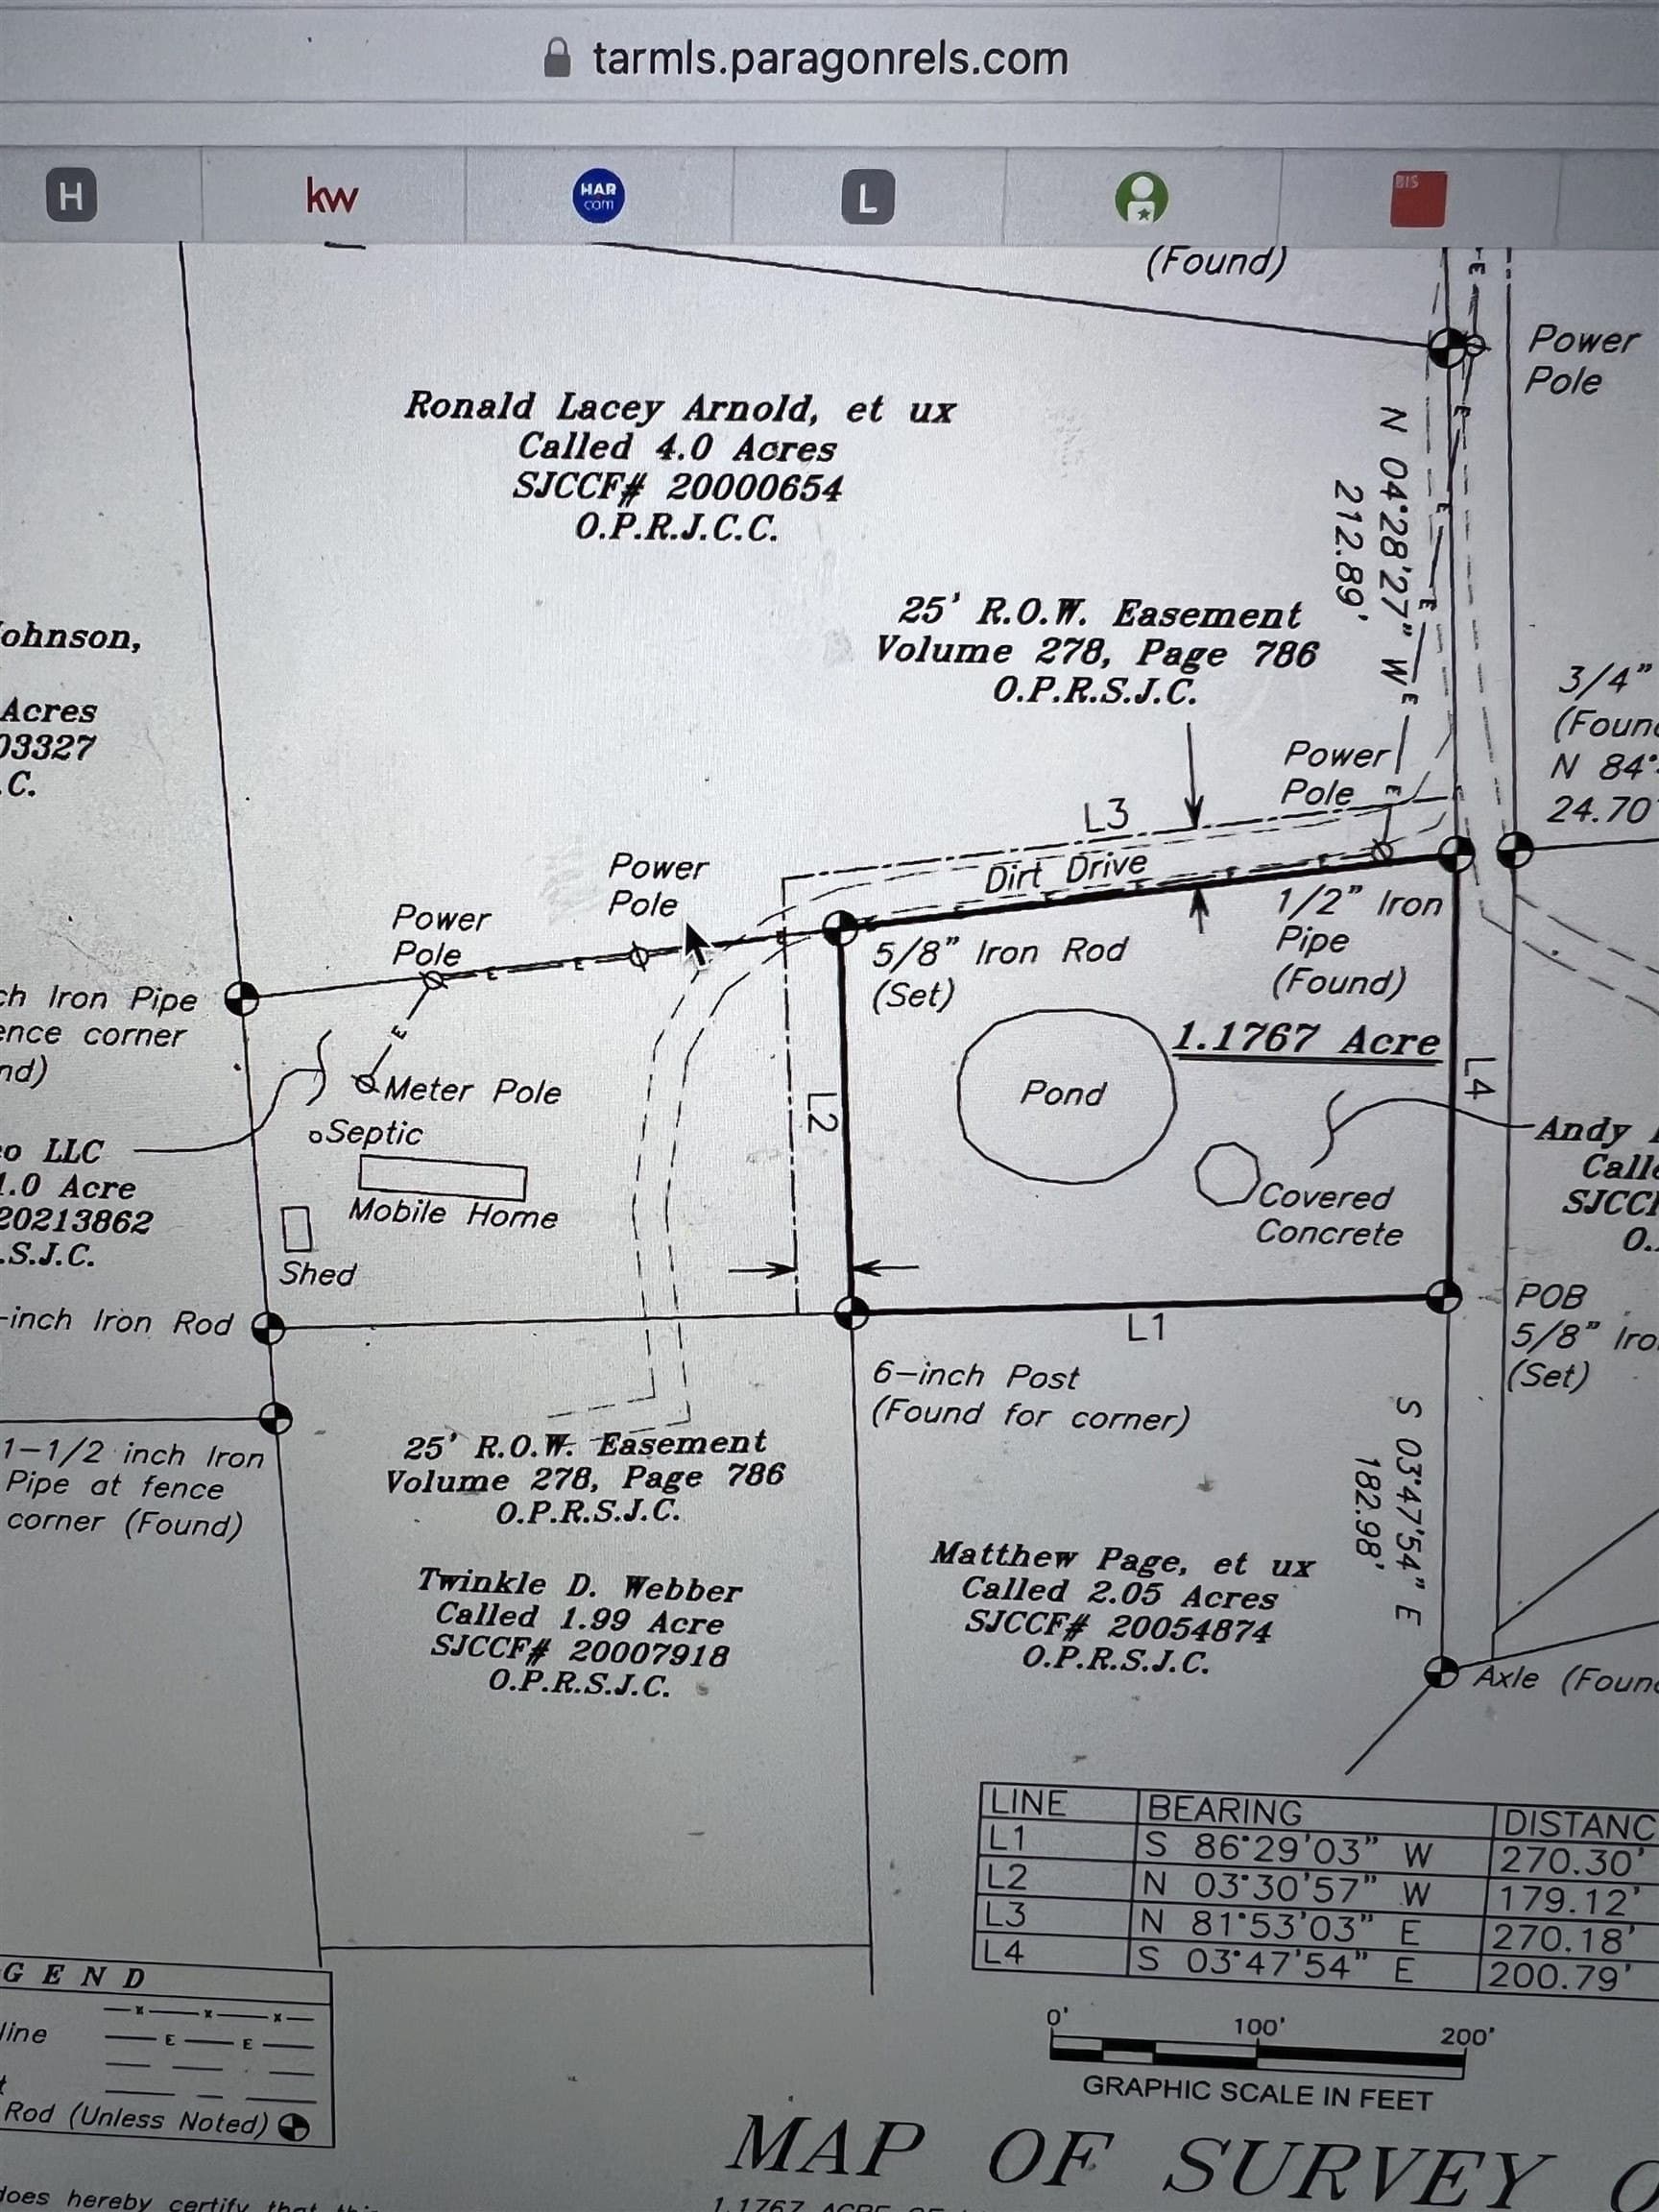 tarmls.paragonrels.com
H
kw
HAR
com
L
BIS
(Found)
E
Power
Pole
Ronald Lacey Arnold, et ux
Called 4.0 Acres
SJCCF# 20000654
O.P.R.J.C.C.
N 04°28'27" W
212.89'
E
E
E
E
25' R.O.W. Easement
Volume 278, Page 786
O.P.R.S.J.C.
ohnson,
Acres
03327
.C.
3/4"
(Foun
N 84°
24.70
Power
Pole
E
L3
Dirt Drive
Power
Pole
Power
Pole
E
E
E
5/8" Iron Rod
(Set)
1/2" Iron
Pipe
(Found)
ch Iron Pipe
ence corner
nd)
E
Meter Pole
Septic
1.1767 Acre
Pond
L2
L4
o LLC
1.0 Acre
20213862
.S.J.C.
Mobile Home
Shed
Covered
Concrete
Andy
Calle
SJCCF
O.
-inch Iron Rod
L1
POB
5/8" Iro
(Set)
6-inch Post
(Found for corner)
1-1/2 inch Iron
Pipe at fence
corner (Found)
25' R.O.W. Easement
Volume 278, Page 786
O.P.R.S.J.C.
S 03°47'54" E
182.98'
Twinkle D. Webber
Called 1.99 Acre
SJCCF# 20007918
O.P.R.S.J.C.
Matthew Page, et ux
Called 2.05 Acres
SJCCF# 20054874
O.P.R.S.J.C.
Axle (Foun
LINE BEARING DISTANC
L1 S 86°29'03" W 270.30'
L2 N 03°30'57" W 179.12'
L3 N 81°53'03" E 270.18'
L4 S 03°47'54" E 200.79'
GEND
x x x
line E E
Rod (Unless Noted)
0' 100' 200'
GRAPHIC SCALE IN FEET
MAP OF SURVEY O
does hereby certify that
1.1767 ACRE